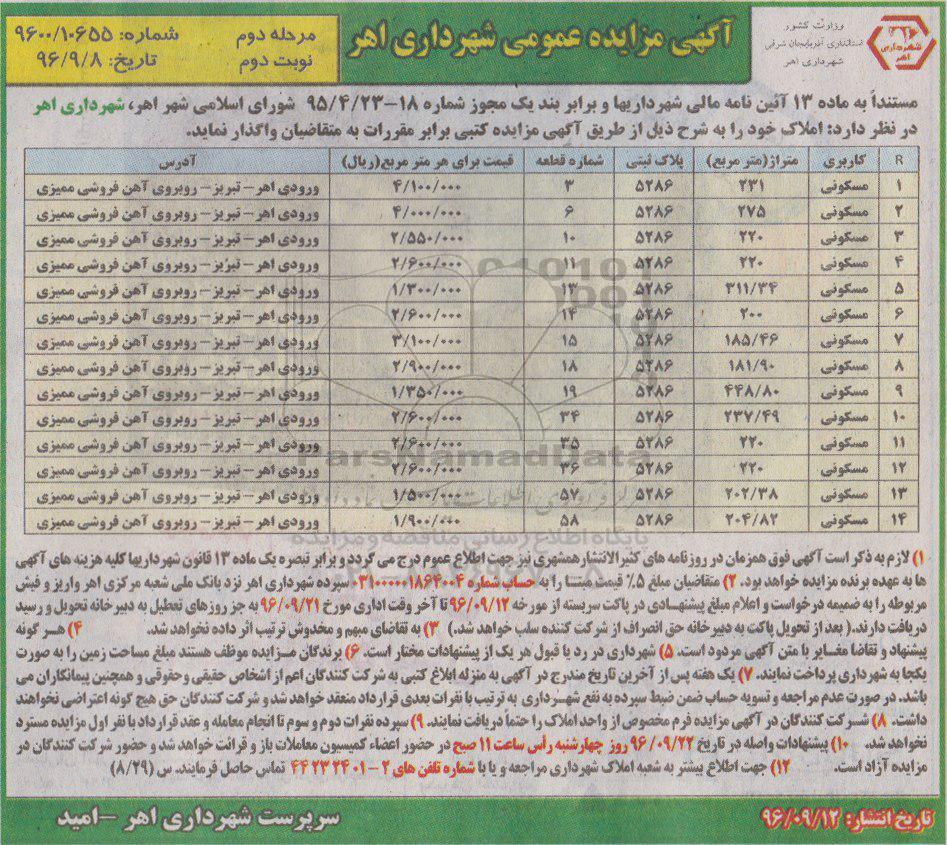 وزارت کشور
استانداری آذربایجان شرقی
شهرداری اهر
شهرداری
اهر
آگهی مزایده عمومی شهرداری اهر
مرحله دوم
نوبت دوم
شماره: ۹۶۰۰/۱۰۶۵۵
تاریخ: ۹۶/۹/۸
مستنداً به ماده ۱۳ آئین نامه مالی شهرداریها و برابر بند یک مجوز شماره ۱۸-۹۵/۴/۲۳ شورای اسلامی شهر اهر، شهرداری اهر
در نظر دارد: املاک خود را به شرح ذیل از طریق آگهی مزایده کتبی برابر مقررات به متقاضیان واگذار نماید.
R کاربری متراژ(متر مربع) پلاک ثبتی شماره قطعه قیمت برای هر متر مربع(ریال) آدرس
۱ مسکونی ۲۳۱ ۵۲۸۶ ۳ ۴/۱۰۰/۰۰۰ ورودی اهر- تبریز- روبروی آهن فروشی ممیزی
۲ مسکونی ۲۷۵ ۵۲۸۶ ۶ ۴/۰۰۰/۰۰۰ ورودی اهر- تبریز- روبروی آهن فروشی ممیزی
۳ مسکونی ۲۲۰ ۵۲۸۶ ۱۰ ۲/۵۵۰/۰۰۰ ورودی اهر- تبریز- روبروی آهن فروشی ممیزی
۴ مسکونی ۲۲۰ ۵۲۸۶ ۱۱ ۲/۶۰۰/۰۰۰ ورودی اهر- تبریز- روبروی آهن فروشی ممیزی
۵ مسکونی ۳۱۱/۳۴ ۵۲۸۶ ۱۳ ۱/۳۰۰/۰۰۰ ورودی اهر- تبریز- روبروی آهن فروشی ممیزی
۶ مسکونی ۲۰۰ ۵۲۸۶ ۱۴ ۲/۶۰۰/۰۰۰ ورودی اهر- تبریز- روبروی آهن فروشی ممیزی
۷ مسکونی ۱۸۵/۴۶ ۵۲۸۶ ۱۵ ۳/۱۰۰/۰۰۰ ورودی اهر- تبریز- روبروی آهن فروشی ممیزی
۸ مسکونی ۱۸۱/۹۰ ۵۲۸۶ ۱۸ ۲/۹۰۰/۰۰۰ ورودی اهر- تبریز- روبروی آهن فروشی ممیزی
۹ مسکونی ۴۴۸/۸۰ ۵۲۸۶ ۱۹ ۱/۳۵۰/۰۰۰ ورودی اهر- تبریز- روبروی آهن فروشی ممیزی
۱۰ مسکونی ۲۳۷/۴۹ ۵۲۸۶ ۳۴ ۲/۶۰۰/۰۰۰ ورودی اهر- تبریز- روبروی آهن فروشی ممیزی
۱۱ مسکونی ۲۲۰ ۵۲۸۶ ۳۵ ۲/۶۰۰/۰۰۰ ورودی اهر- تبریز- روبروی آهن فروشی ممیزی
۱۲ مسکونی ۲۲۰ ۵۲۸۶ ۳۶ ۲/۶۰۰/۰۰۰ ورودی اهر- تبریز- روبروی آهن فروشی ممیزی
۱۳ مسکونی ۲۰۲/۳۸ ۵۲۸۶ ۵۷ ۱/۵۰۰/۰۰۰ ورودی اهر- تبریز- روبروی آهن فروشی ممیزی
۱۴ مسکونی ۲۰۴/۸۲ ۵۲۸۶ ۵۸ ۱/۹۰۰/۰۰۰ ورودی اهر- تبریز- روبروی آهن فروشی ممیزی
ParsNamadData
پایگاه اطلاع رسانی مناقصه و مزایده
۱) لازم به ذکر است آگهی فوق همزمان در روزنامه های کثیرالانتشار همشهری نیز جهت اطلاع عموم درج می گردد و برابر تبصره یک ماده ۱۳ قانون شهرداریها کلیه هزینه های آگهی
ها به عهده برنده مزایده خواهد بود. ۲) متقاضیان مبلغ ۵٪ قیمت مبنـا را به حساب شماره ۰۳۱۰۰۰۰۰۱۸۶۴۰۰۴ سپرده شهرداری اهر نزد بانک ملی شعبه مرکزی اهر واریز و فیش
مربوطه را به ضمیمه درخواست و اعلام مبلغ پیشنهـادی در پاکت سربسته از مورخه ۹۶/۰۹/۱۲ تا آخر وقت اداری مورخ ۹۶/۰۹/۲۱ به جز روزهای تعطیل به دبیرخانه تحویل و رسید
دریافت دارند.( بعد از تحویل پاکت به دبیرخانه حق انصراف از شرکت کننده سلب خواهد شد.) ۳) به تقاضای مبهم و مخدوش ترتیب اثر داده نخواهد شد. ۴) هـر گونه
پیشنهاد و تقاضا مغـایر با متن آگهی مردود است. ۵) شهرداری در رد یا قبول هر یک از پیشنهادات مختار است. ۶) برندگان مـزایده موظف هستند مبلغ مساحت زمین را به صورت
یکجا به شهرداری پرداخت نمایند. ۷) یک هفته پس از آخرین تاریخ مندرج در آگهی به منزله ابلاغ کتبی به شرکت کنندگان اعم از اشخاص حقیقی وحقوقی و همچنین پیمانکاران می
باشد. در صورت عدم مراجعه و تسویه حساب ضمن ضبط سپرده به نفع شهـرداری به ترتیب با نفرات بعدی قرارداد منعقد خواهد شد و شرکت کنندگان حق هیچ گونه اعتراضی نخواهند
داشت. ۸) شـرکت کنندگان در آگهی مزایده فرم مخصوص از واحد املاک را حتماً دریافت نمایند. ۹) سپرده نفرات دوم و سوم تا انجام معامله و عقد قرارداد با نفر اول مزایده مسترد
نخواهد شد. ۱۰) پیشنهادات واصله در تاریخ ۹۶/۰۹/۲۲ روز چهارشنبه رأس ساعت ۱۱ صبح در حضور اعضاء کمیسیون معاملات باز و قرائت خواهد شد و حضور شرکت کنندگان در
مزایده آزاد است. ۱۲) جهت اطلاع بیشتر به شعبه املاک شهرداری مراجعه و یا با شماره تلفن های ۲-۴۴۲۳۲۴۰۱ تماس حاصل فرمایند. س (۸/۲۹)
تاریخ انتشار: ۹۶/۰۹/۱۲
سرپرست شهرداری اهر -امید